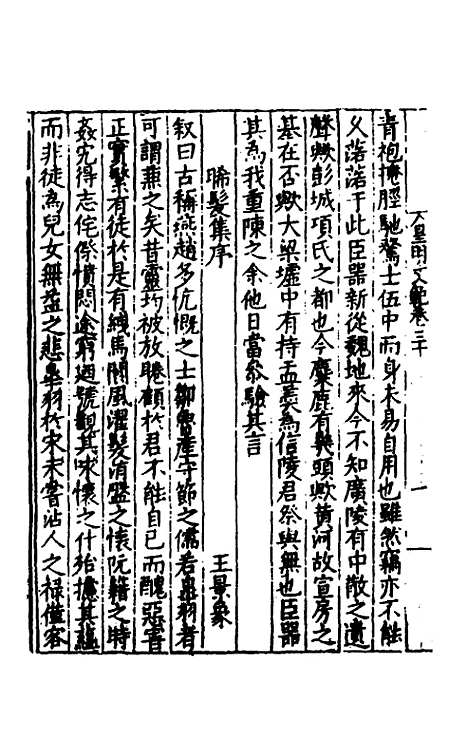 皇明文範卷三十
一
青袍掩脛馳驁士伍中而身未易自用也雖然竊亦不能
父落落于此臣器新從魏地來今不知廣陵有中散之遺
聲歟彭城項氏之都也今麋鹿有幾頭歟黃河故宣房之
基在否歟大梁墟中有持盂羹為信陵君祭與無也臣器
其為我重陳之余他日當參驗其言
晞髮集序
王景象
叙曰古稱燕趙多忼慨之士鄒魯產守節之儒若皐羽者
可謂兼之矣昔靈均被放睠顧於君不能自已而醜惡害
正寔繁有徒於是有緤馬閬風濯髮洧盤之懷阮籍之時
姦宄得志侘傺憤悶途窮迴號觀其咏懷之什殆攄其蘊
而非徒為兒女無益之悲皐羽於宋未嘗沾人之祿僅客